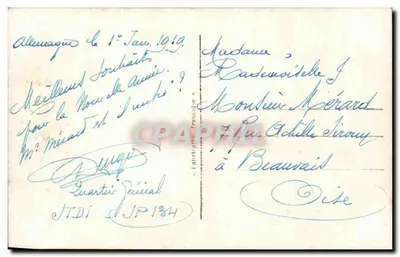 Allemagne le 1er Janv. 1919.
Meilleurs souhaits
pour la Nouvelle Année.
Mr Mérard est il rentré ?
Quartier Général
SP 134
Fabrication Française
Madame,
Mademoiselle J
Monsieur Mérard
7 Rue Achille Sirouy
à Beauvais
Oise